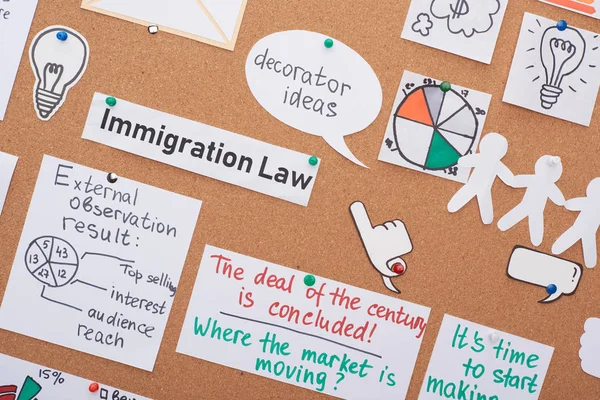 decorator
ideas
Immigration Law
External
observation
result:
5
43
13
27
12
Top selling
interest
audience
reach
The deal of the century
is concluded!
Where the market is
moving?
It's time
to start
making
15%
$